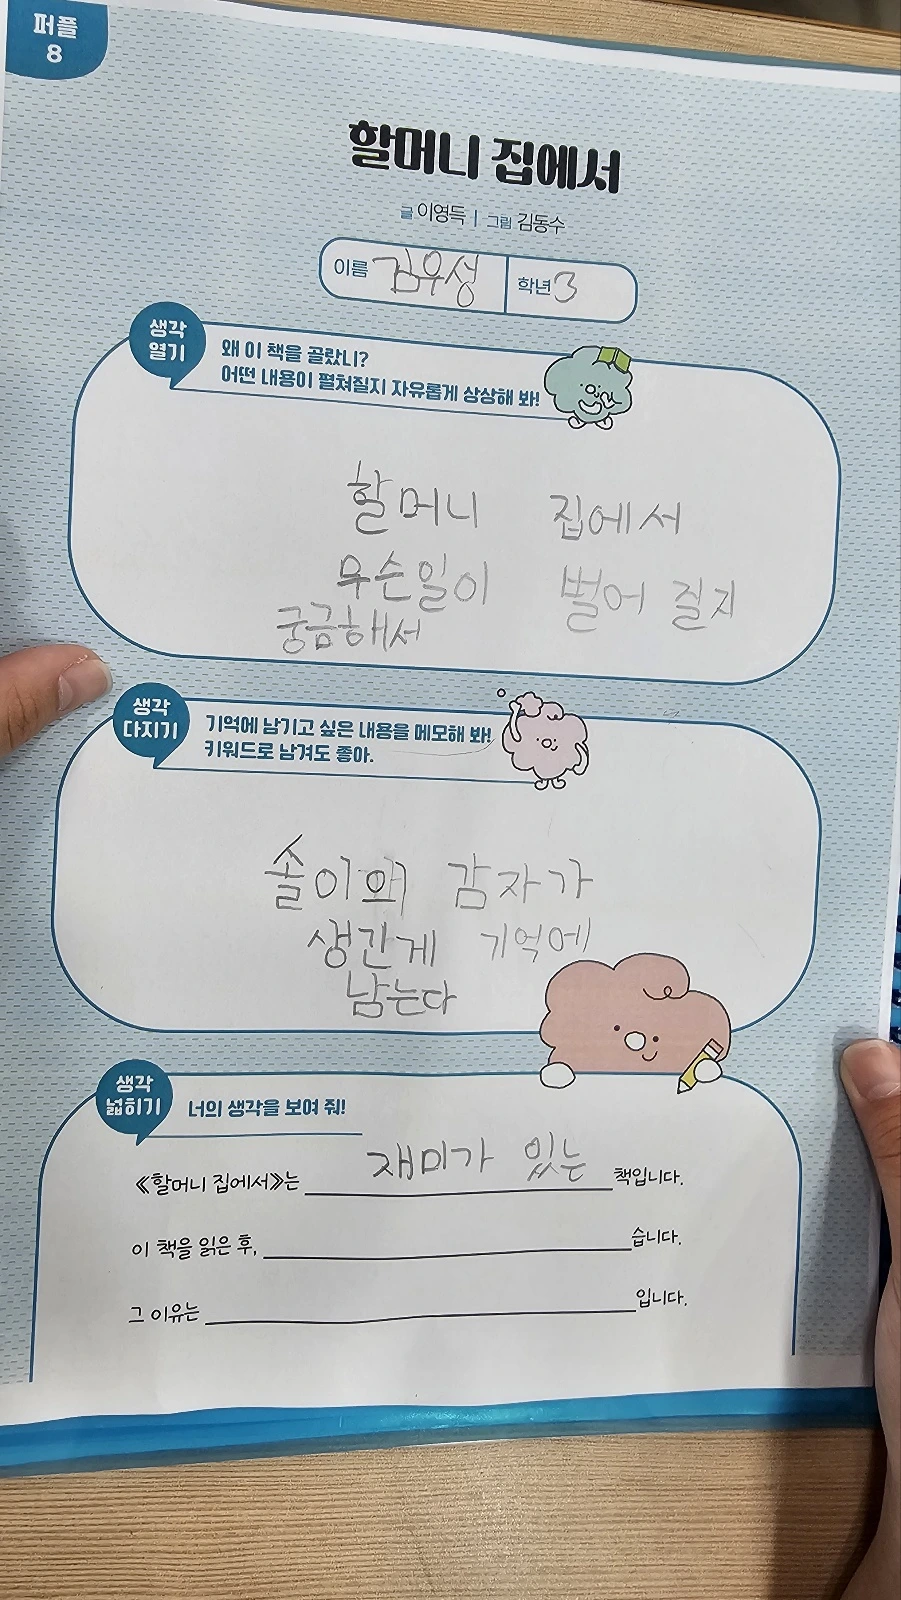 퍼플
8
할머니 집에서
글 이영득 | 그림 김동수
이름 김우성 학년 3
생각
열기
왜 이 책을 골랐니?
어떤 내용이 펼쳐질지 자유롭게 상상해 봐!
할머니 집에서
무슨일이 벌어 질지
궁금해서
생각
다지기
기억에 남기고 싶은 내용을 메모해 봐!
키워드로 남겨도 좋아.
솔이와 감자가
생간게 기억에
남는다
생각
넓히기
너의 생각을 보여 줘!
《할머니 집에서》는 재미가 있는 책입니다.
이 책을 읽은 후, 습니다.
그 이유는 입니다.